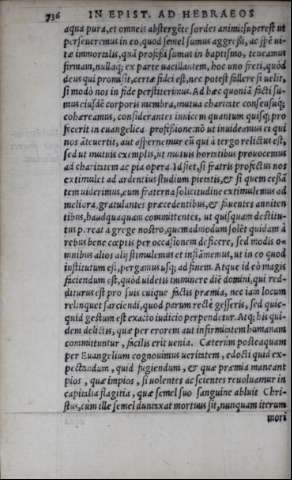 736 IN EPIST. AD HEBRAEOS
aqua pura, et omneis abstergēte sordes animi: superest ut
perseueremus in eo, quod semel sumus aggressi, ac spē ui-
tæ immortalis, quā professi sumus in baptismo, teneamus
firmam, nullaq; ex parte uacillantem, hoc uno freti, quòd
deus qui promisit, certæ fidei est, nec potest fallere si uelit,
si modò nos in fide perstiterimus. Ad hæc quoniā facti su-
mus eiusdē corporis membra, mutua charitate consensuq;
cohæreamus, considerantes inuicem quantum quisq; pro
fecerit in euangelica professione: nō ut inuideamus ei qui
nos āteuertit, aut aspernemur eū qui à tergo relictus est,
sed ut mutuis exemplis, ut mutuis hortatibus prouocemus
ad charitatem ac pia opera. Id fiet, si fratris profectus nos
extimulet ad ardentius studium pietatis, & si quem cessā
tem uiderimus, eum fraterna solicitudine extimulemus ad
meliora, gratulantes præcedentibus, & fauentes anniten
tibus, haudquaquam committentes, ut quisquam destitu-
tus pereat à grege nostro, quemadmodum solēt quidam à
rebus bene cœptis per occasionem deficere, sed modis o-
mnibus alios alij stimulemus et inflāmemus, ut in eo quod
institutum est, pergamus usq; ad finem. Atque id eò magis
faciendum est, quod uidetis imminere diē domini, qui red-
diturus est pro suis cuique factis præmia, nec iam locum
relinquet sarciendi, quod parum rectè gesseris, sed quic-
quid gestum est exacto iudicio perpendetur. Atq; his qui-
dem delictis, quæ per errorem aut infirmitatem humanam
committuntur, facilis erit uenia. Cæterùm posteaquam
per Euangelium cognouimus ueritatem, edocti quid ex-
pectandum, quid fugiendum, & quæ præmia maneant
pios, quæ impios, si uolentes ac scientes reuoluamur in
capitalia flagitia, quæ semel suo sanguine abluit Chri-
stus, cum ille semel duntaxat mortuus sit, nunquam iterum
mori